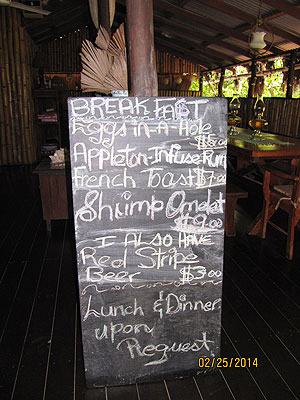 BREAKFAST
Eggs-in-A-Hole
$5.00
Appleton-Infuse Rum
French Toast $7.00
Shrimp Omelet
$9.00
I Also HAVE
Red Stripe
Beer $3.00
Lunch & Dinner
upon
Request
02/25/2014